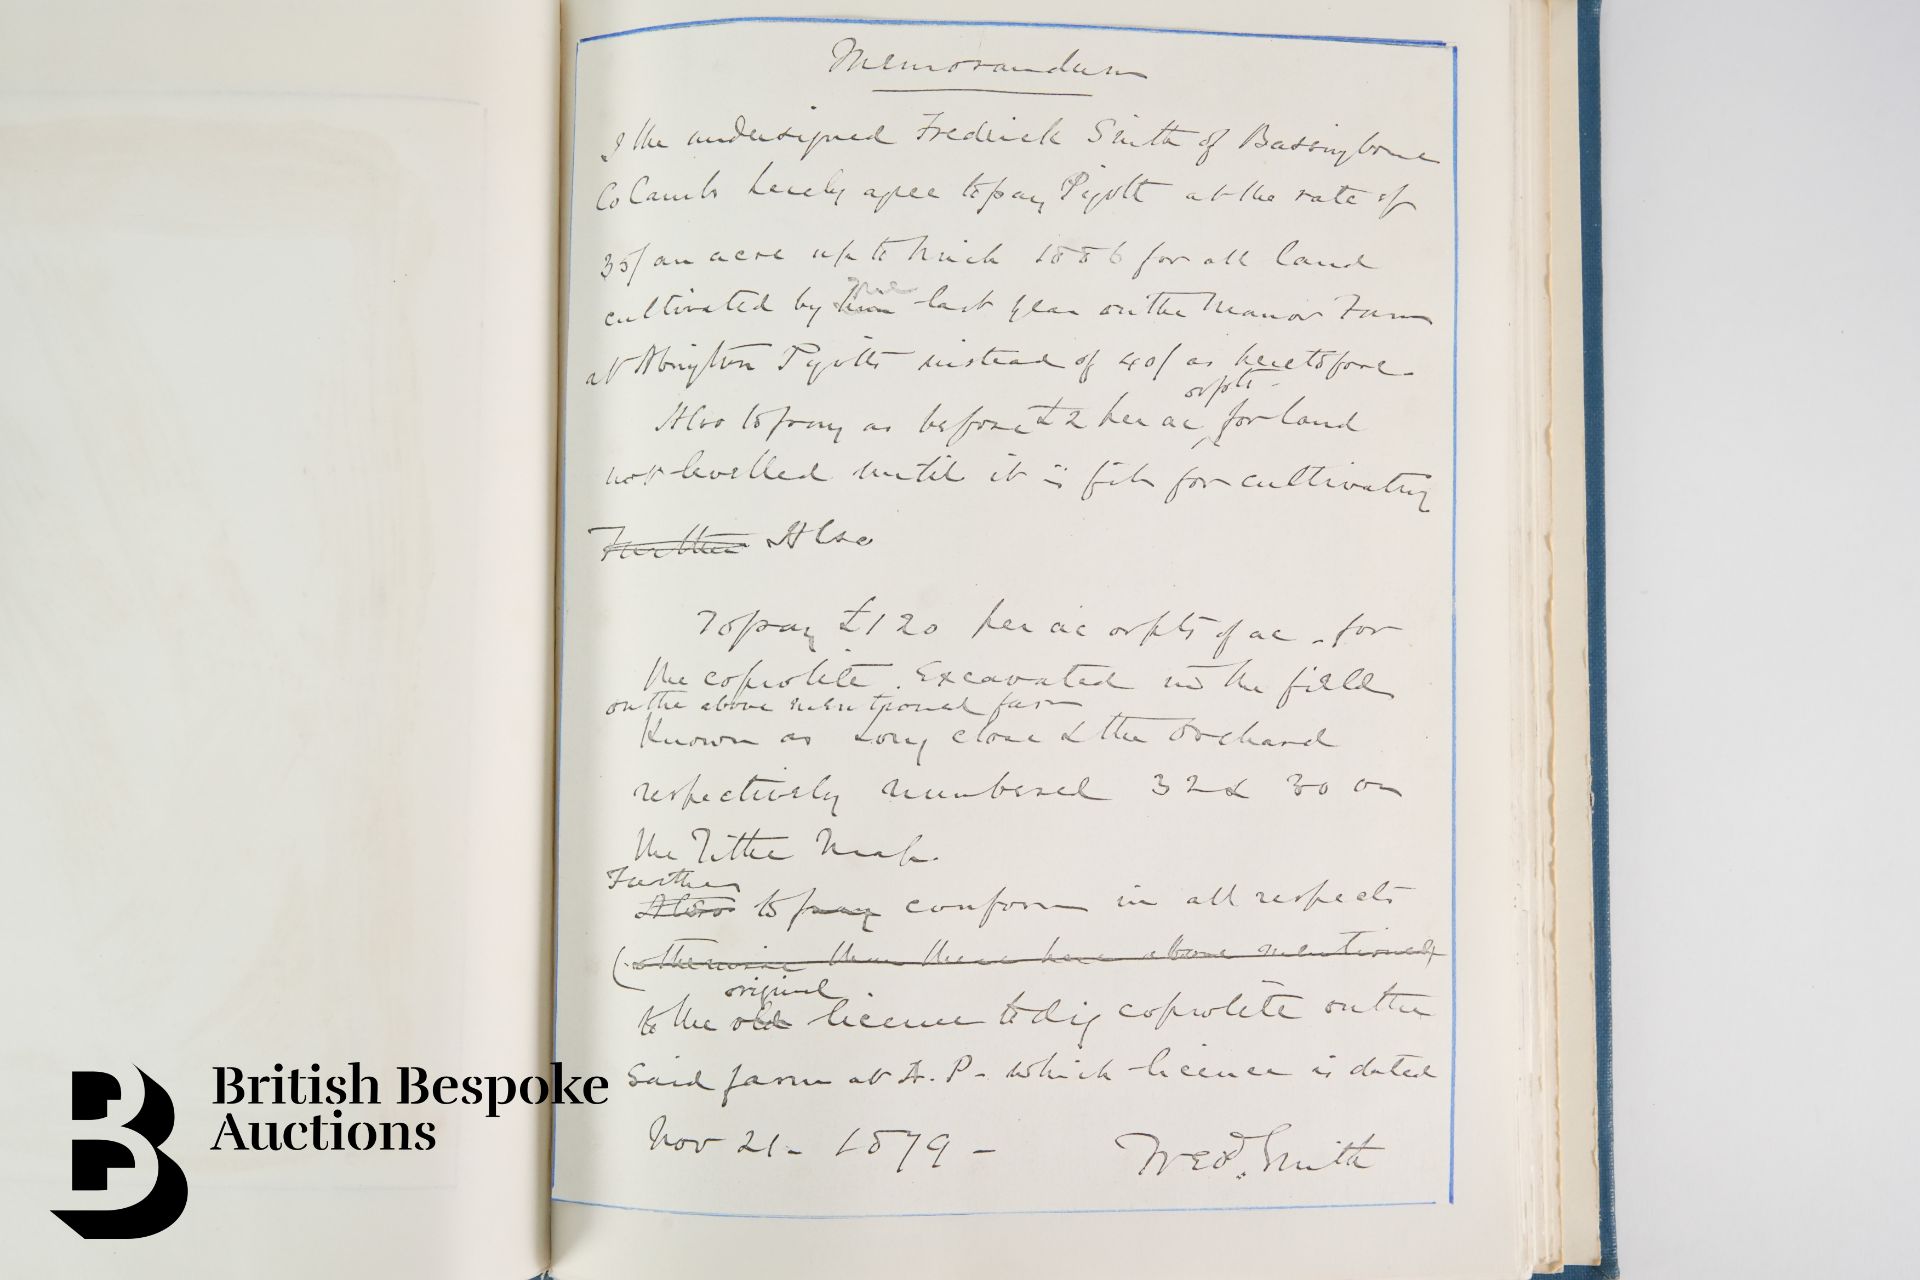 Memorandum
I the undersigned Frederick Smith of Bassingbourne
Co Cambs hereby agree to pay Pigott at the rate of
35/ an acre up to Mich 1886 for all land
me
cultivated by him last year on the Manor Farm
at Abington Pigotts instead of 40/ as heretofore.
or pts
Also to pay as before £2 per ac for land
not levelled until it is fit for cultivating
Further Also
To pay £120 per ac or pts of ac. for
the coprolite. Excavated in the field
on the above mentioned farm
Known as Long close & the Orchard
respectively numbered 32 & 30 on
the Tithe Map.
Further
Also to pay conform in all respects
(otherwise than these here above mentioned)
original
to the old licence to dig coprolite on the
Said farm at A. P. - which licence is dated
Nov 21 - 1879 -
Fredk. Smith
British Bespoke
Auctions